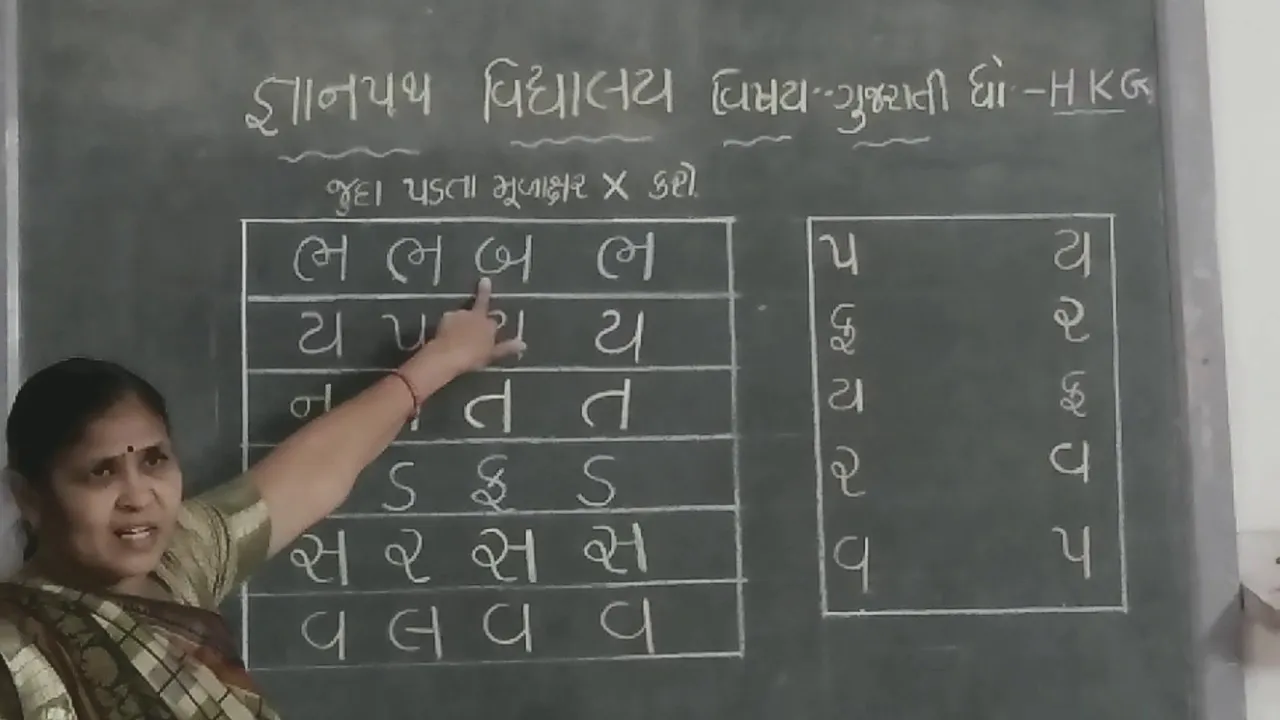 જ્ઞાનપથ વિદ્યાલય વિષય-ગુજરાતી ધો-HKG
જુદા પડતા મૂળાક્ષર X કરો.
ભ ભ બ ભ
ય પ ય ય
ન ત ત
ડ ફ ડ
સ ર સ સ
વ લ વ વ
પ ય
ફ ર
ય ફ
ર વ
વ પ